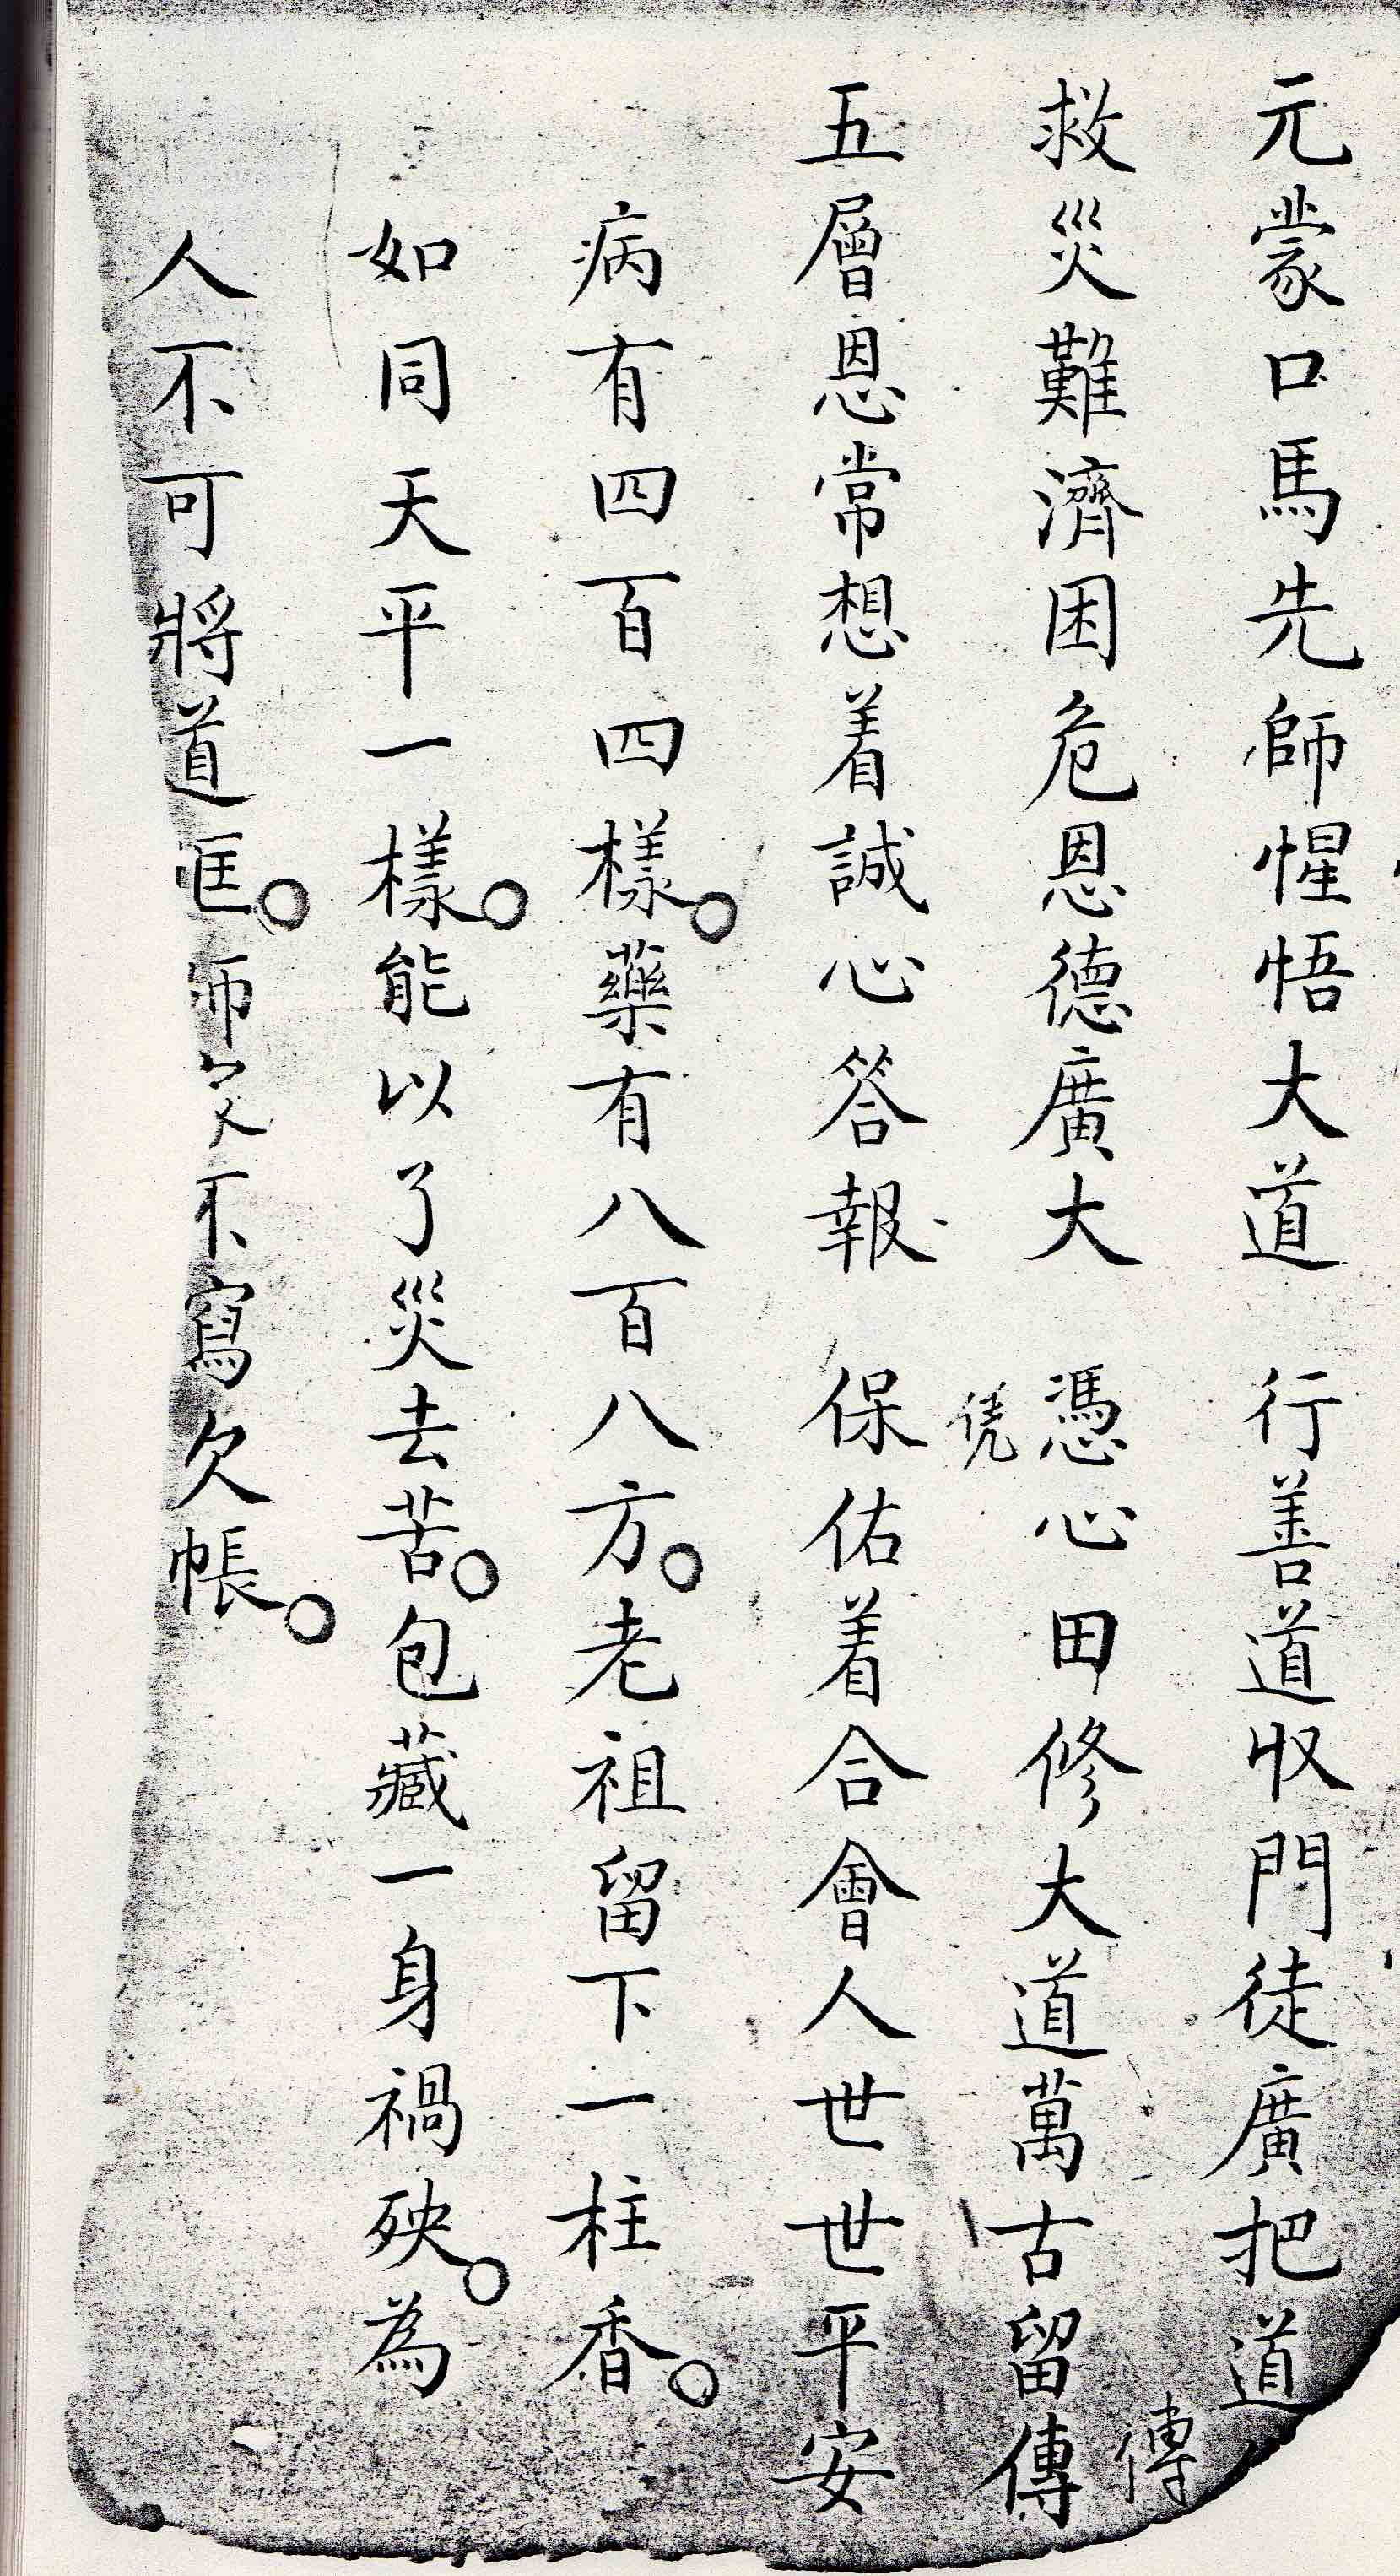 元蒙口馬先師惺悟大道 行善道収門徒廣把道傳
救災難濟困危恩德廣大 憑心田修大道萬古留傳
凭
五層恩常想着誠心答報 保佑着合會人世世平安
病有四百四樣。藥有八百八方。老祖留下一柱香。
如同天平一樣。能以了災去苦。包藏一身禍殃。為
人不可將道誆。師父不寫欠帳。